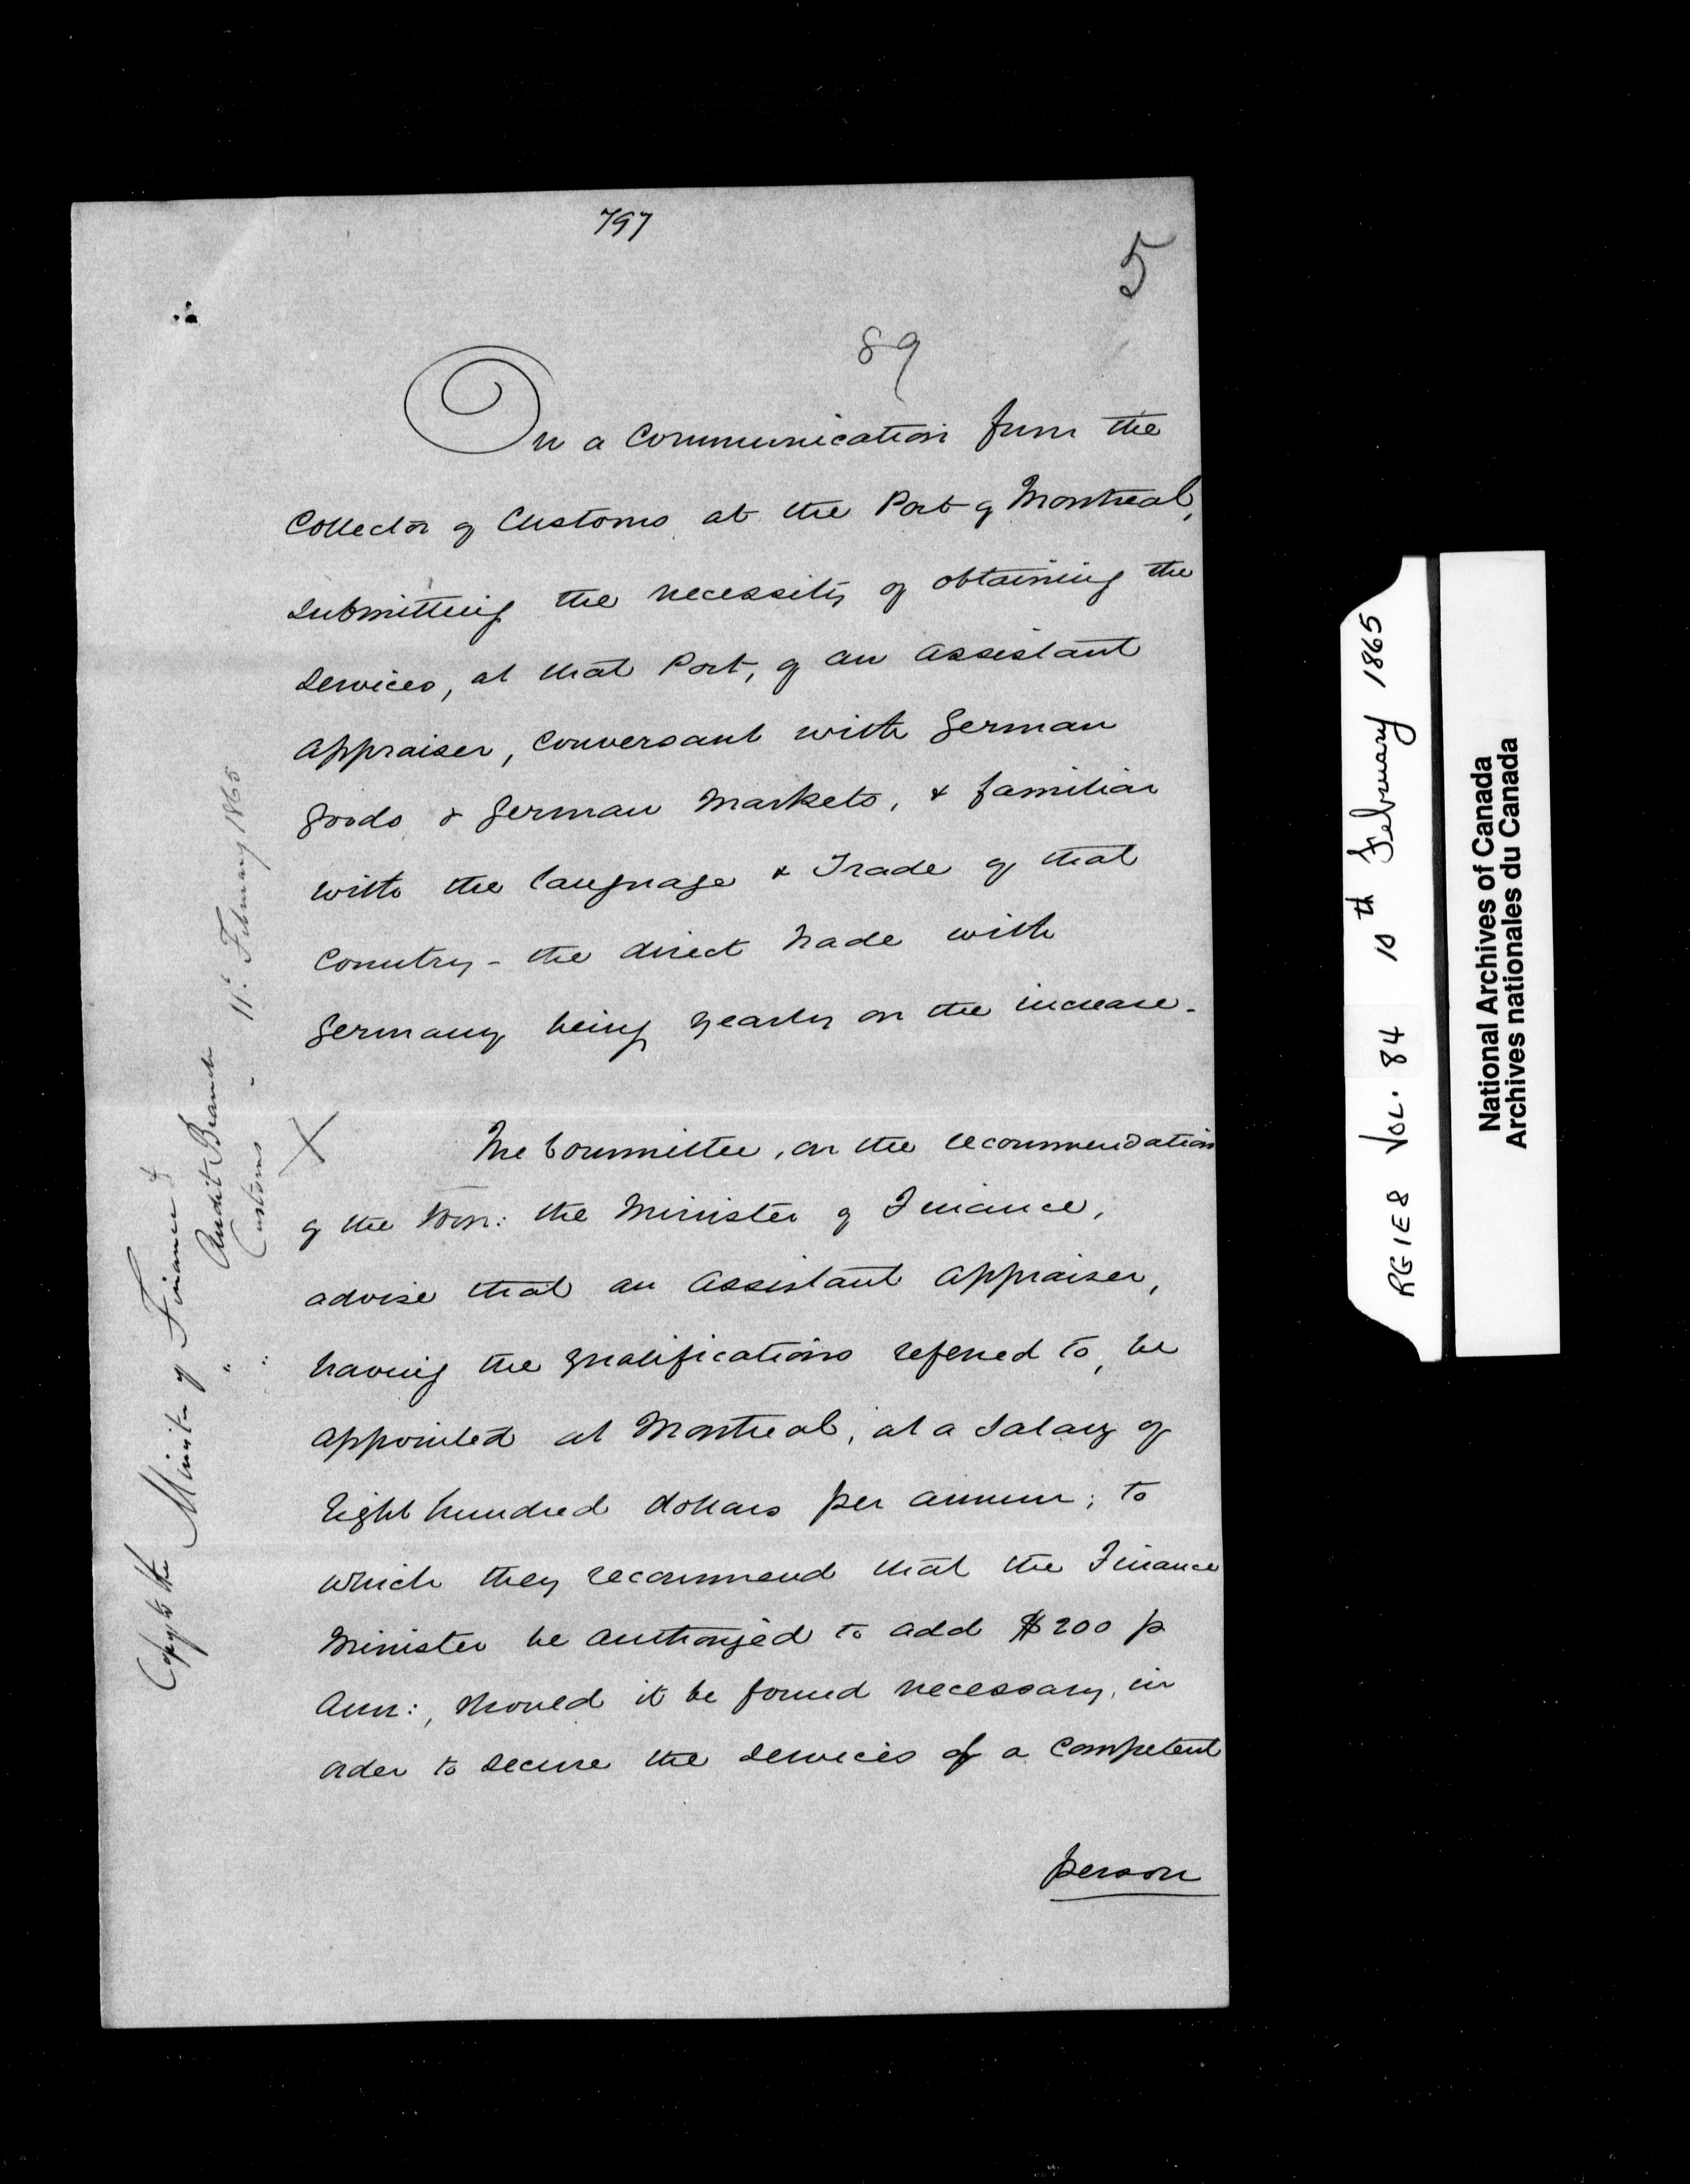 797
5
89
On a Communication from the
Collector of Customs at the Port of Montreal,
submitting the necessity of obtaining the
services, at that Port, of an Assistant
Appraiser, conversant with German
Goods & German Markets, & familiar
with the language & Trade of that
Country - the direct trade with
Germany being yearly on the increase -
X The Committee, on the recommendation
of the Hon: the Minister of Finance,
advise that an Assistant Appraiser,
having the qualifications referred to, be
appointed at Montreal, at a Salary of
Eight hundred dollars per annum; to
which they recommend that the Finance
Minister be authorized to add $200 p
Ann:, should it be found necessary, in
order to secure the services of a Competent
person
Copy to the Minister of Finance &
" Audit Branch
" Customs - 11th February 1865
RG1E8 VOL. 84 10th February 1865
National Archives of Canada
Archives nationales du Canada